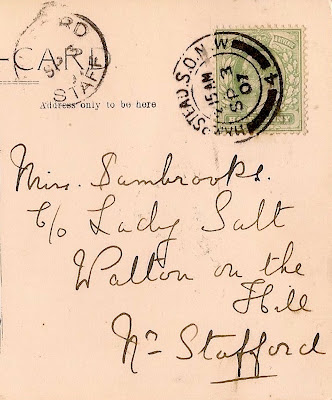 -CARD
Address only to be here
STAFF
HAMPSTEAD.S.O.N.W
SP 3
07
4
Miss. Sambrooks.
C/o Lady Salt
Walton on the
Hill
Nr Stafford